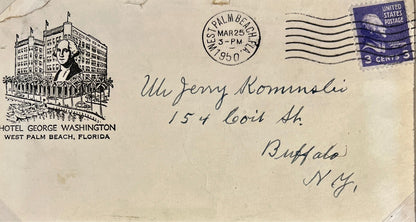 WEST PALM BEACH, FLA.
MAR 25
3-PM
1950
UNITED STATES POSTAGE
3 CENTS 3
HOTEL GEORGE WASHINGTON
WEST PALM BEACH, FLORIDA
Mr Jerry Kominski
154 Coit St.
Buffalo
N.Y.